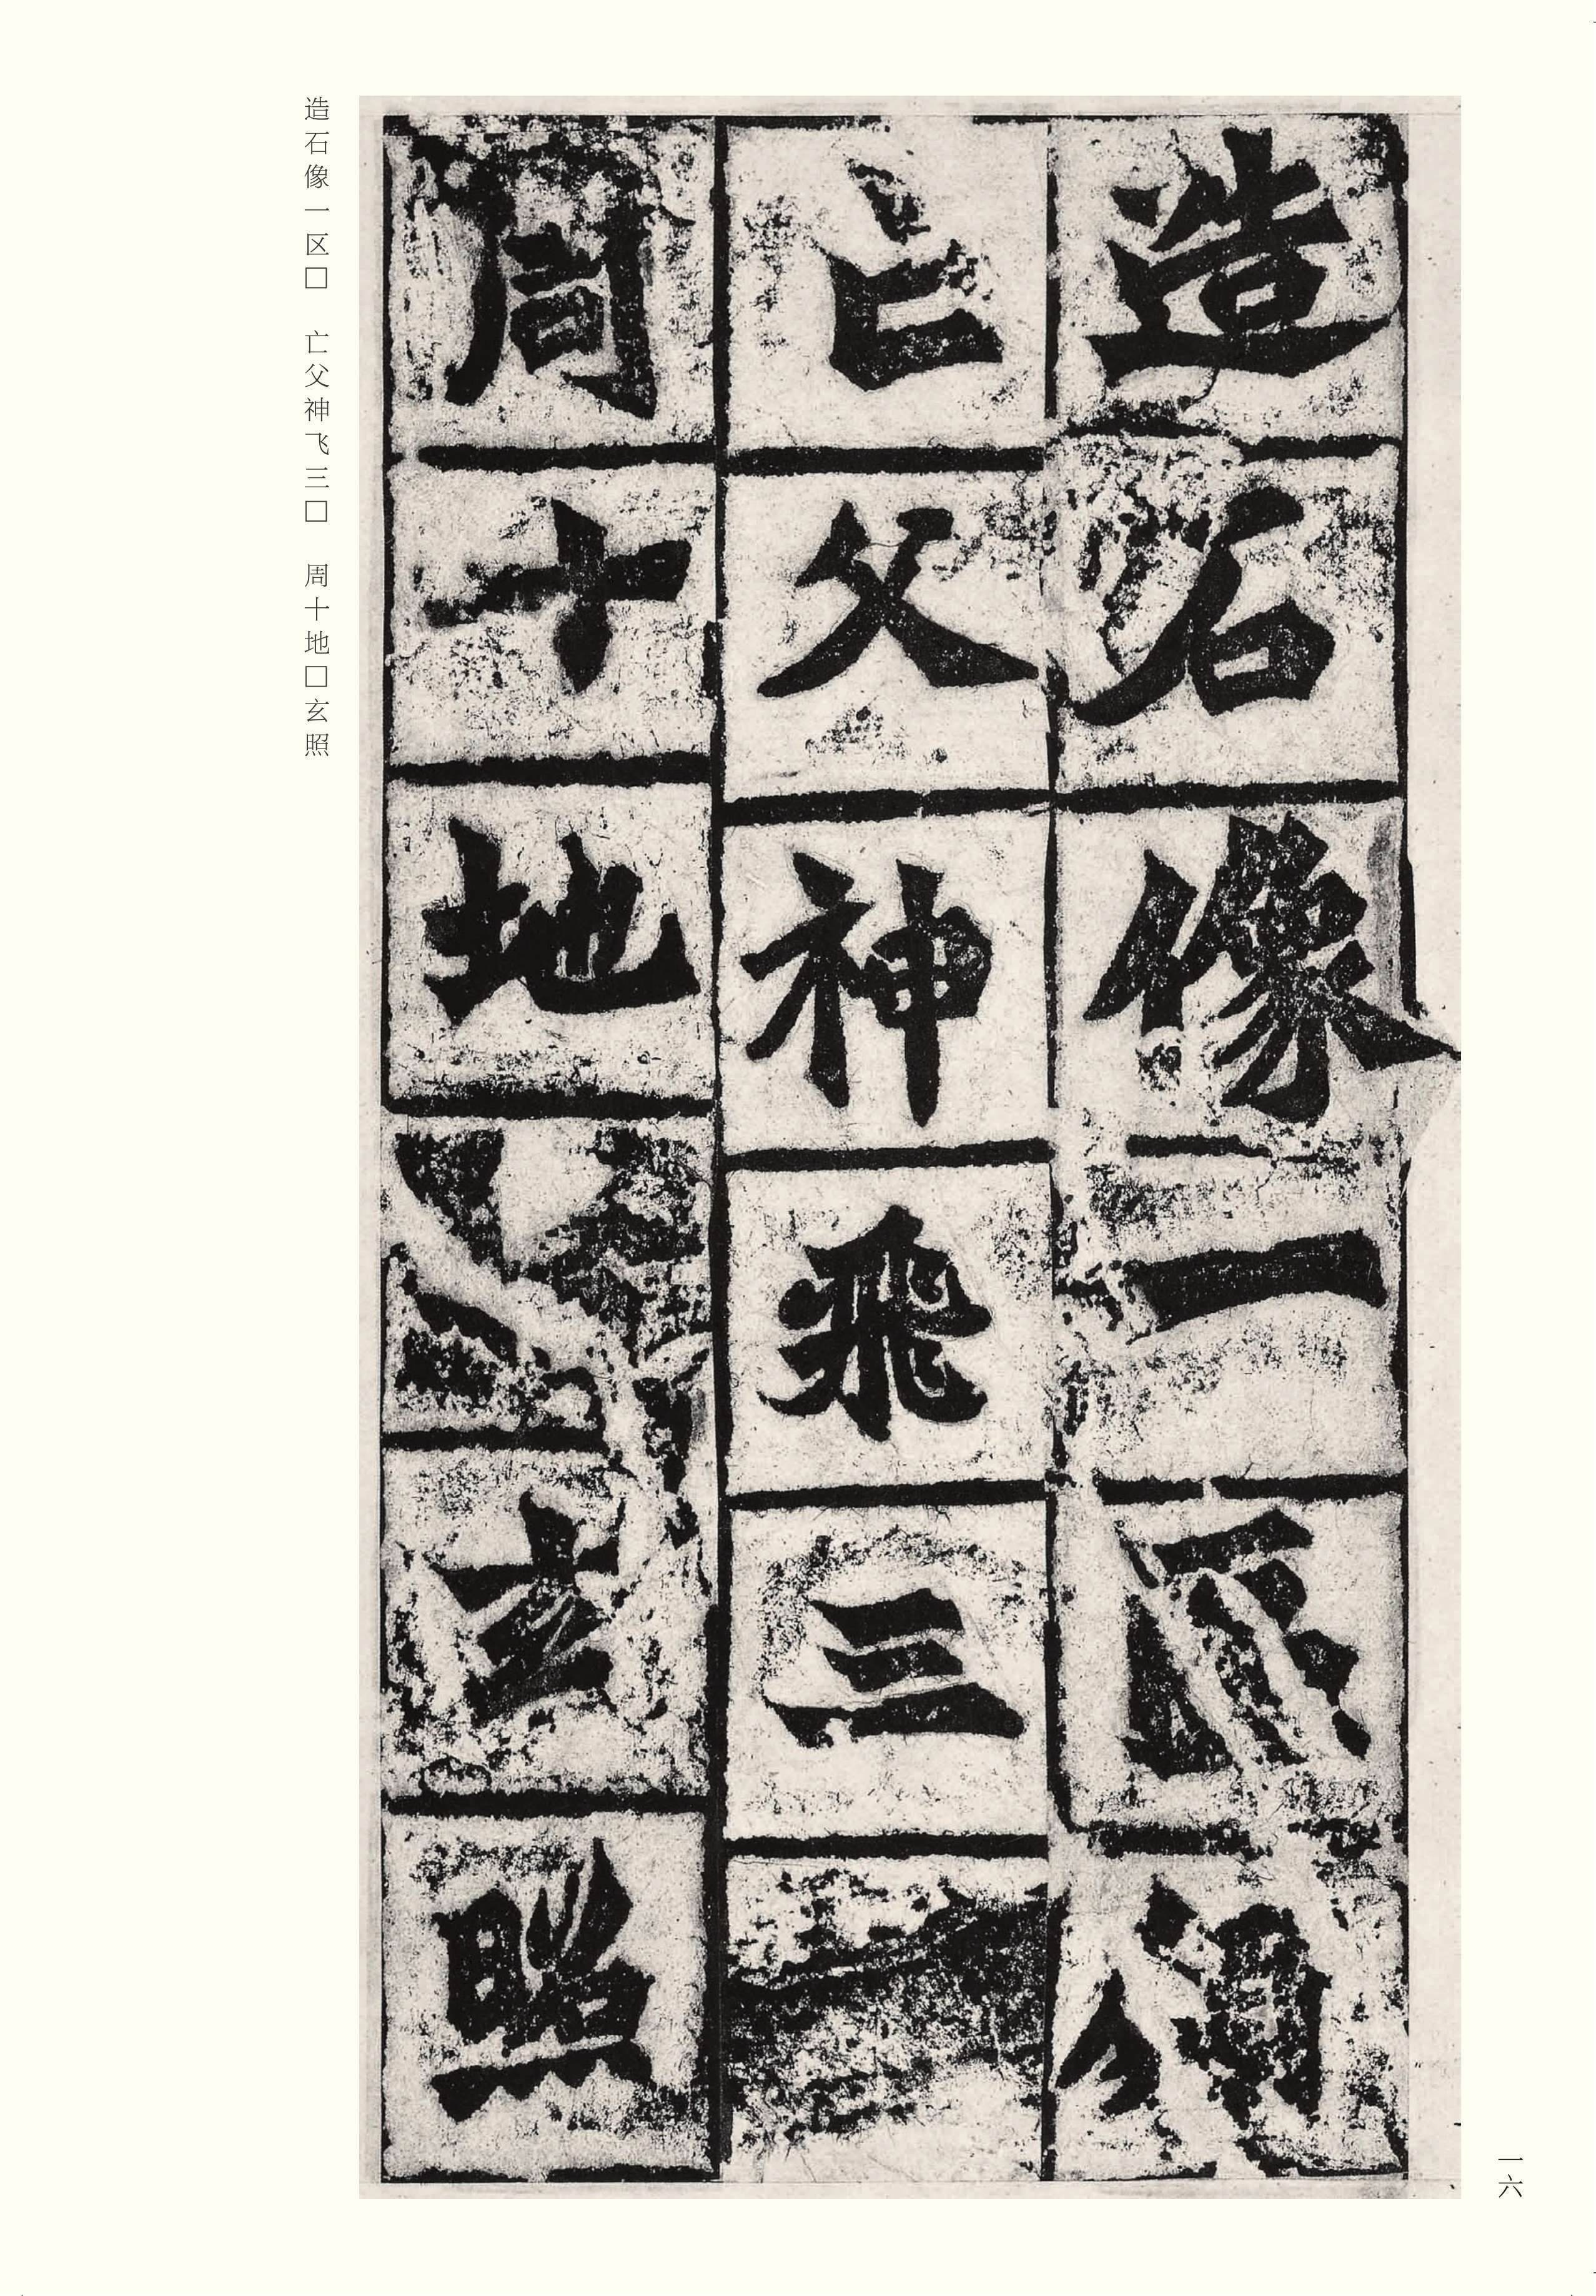 造石像一区□　亡父神飞三□　周十地□玄照
造石像一
亡父神飛三
周十地
玄照
一六